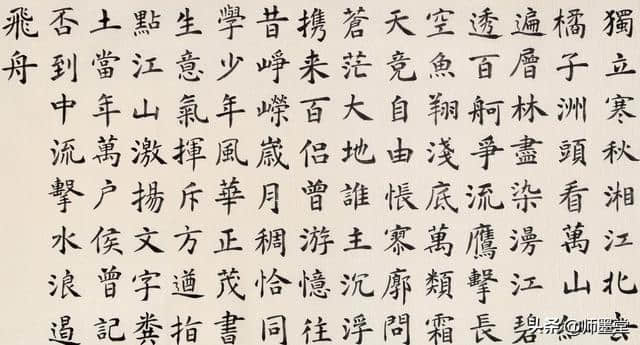 獨立寒秋湘江北去
橘子洲頭看萬山紅
遍層林盡染漫江碧
透百舸爭流鷹擊長
空魚翔淺底萬類霜
天竞自由悵寥廓問
蒼茫大地誰主沉浮
携来百侣曾游憶往
昔崢嶸嵗月稠恰同
學少年風華正茂書
生意氣揮斥方遒指
點江山激揚文字糞
土當年萬户侯曾記
否到中流擊水浪遏
飛舟
头条 @师墨堂